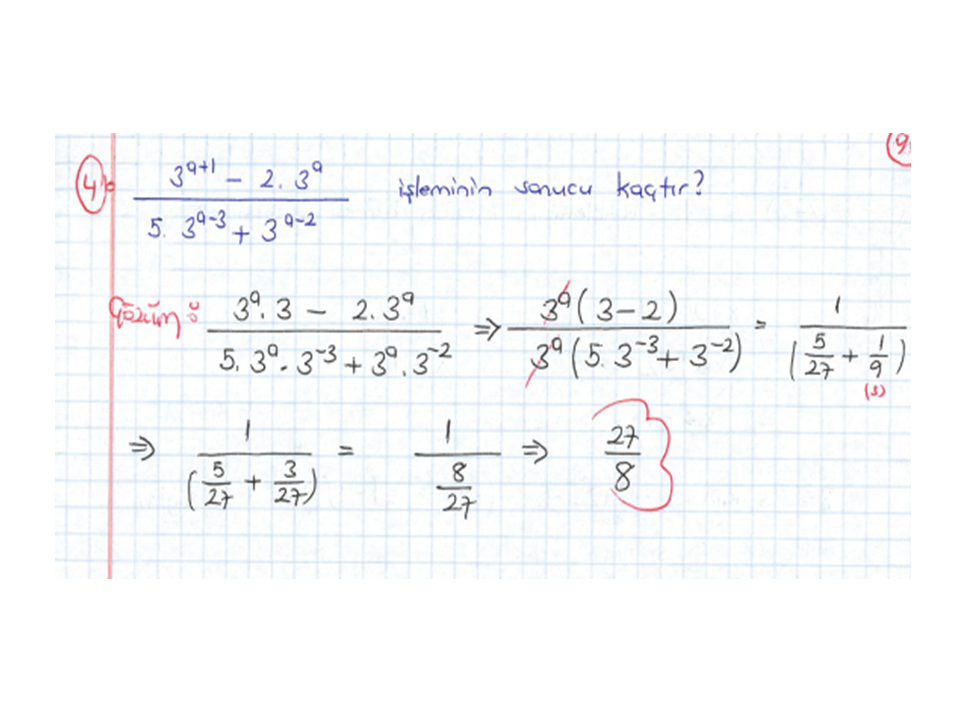 9
4) 3^{a+1} - 2. 3^a / 5. 3^{a-3} + 3^{a-2} işleminin sonucu kaçtır?
Çözüm: 3^a. 3 - 2. 3^a / 5. 3^a . 3^{-3} + 3^a . 3^{-2} ⇒ 3^a ( 3-2 ) / 3^a ( 5. 3^{-3} + 3^{-2} ) = 1 / ( 5/27 + 1/9 )
(3)
⇒ 1 / ( 5/27 + 3/27 ) = 1 / 8/27 ⇒ 27/8